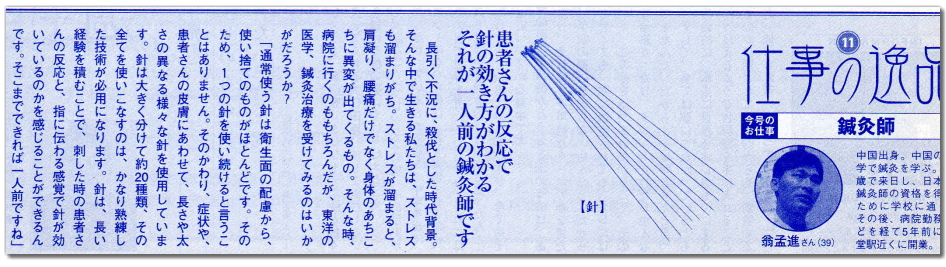 仕事の逸品
11
今号の
お仕事
鍼灸師
中国出身。中国の
学で鍼灸を学ぶ。
歳で来日し、日本
鍼灸師の資格を得
ために学校に通
その後、病院勤務
どを経て5年前に
堂駅近くに開業。
翁孟進さん(39)
【針】
患者さんの反応で
針の効き方がわかる
それが一人前の鍼灸師です
長引く不況に、殺伐とした時代背景。
そんな中で生きる私たちは、ストレス
も溜まりがち。ストレスが溜まると、
肩凝り、腰痛だけでなく身体のあちこ
ちに異変が出てくるもの。そんな時、
病院に行くのももちろんだが、東洋の
医学、鍼灸治療を受けてみるのはいか
がだろうか?
「通常使う針は衛生面の配慮から、
使い捨てのものがほとんどです。その
ため、1つの針を使い続けると言うこ
とはありません。そのかわり、症状や、
患者さんの皮膚にあわせて、長さや太
さの異なる様々な針を使用していま
す。針は大きく分けて約20種類、その
全てを使いこなすのは、かなり熟練し
た技術が必用になります。針は、長い
経験を積むことで、刺した時の患者さ
んの反応と、指に伝わる感覚で針が効
いているのかを感じることができるん
です。そこまでできれば一人前ですね」